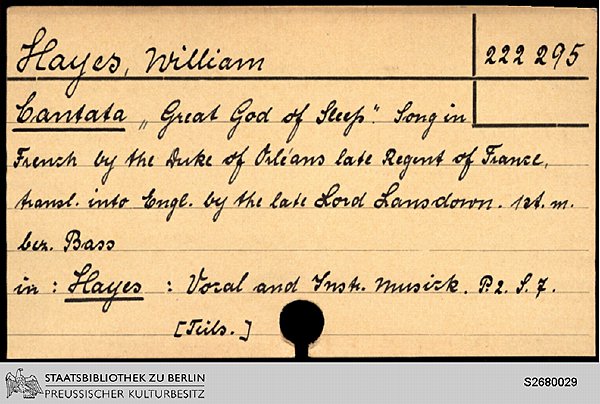 Hayes, William
222 295
Cantata „Great God of Sleep“. Song in
French by the Duke of Orléans late Regent of France,
transl. into Engl. by the late Lord Lansdown. 1st. m.
bez. Bass
in: Hayes: Vocal and Instr. Musick. P. 2. S. 7.
[Teils.]
STAATSBIBLIOTHEK ZU BERLIN
PREUSSISCHER KULTURBESITZ
S2680029